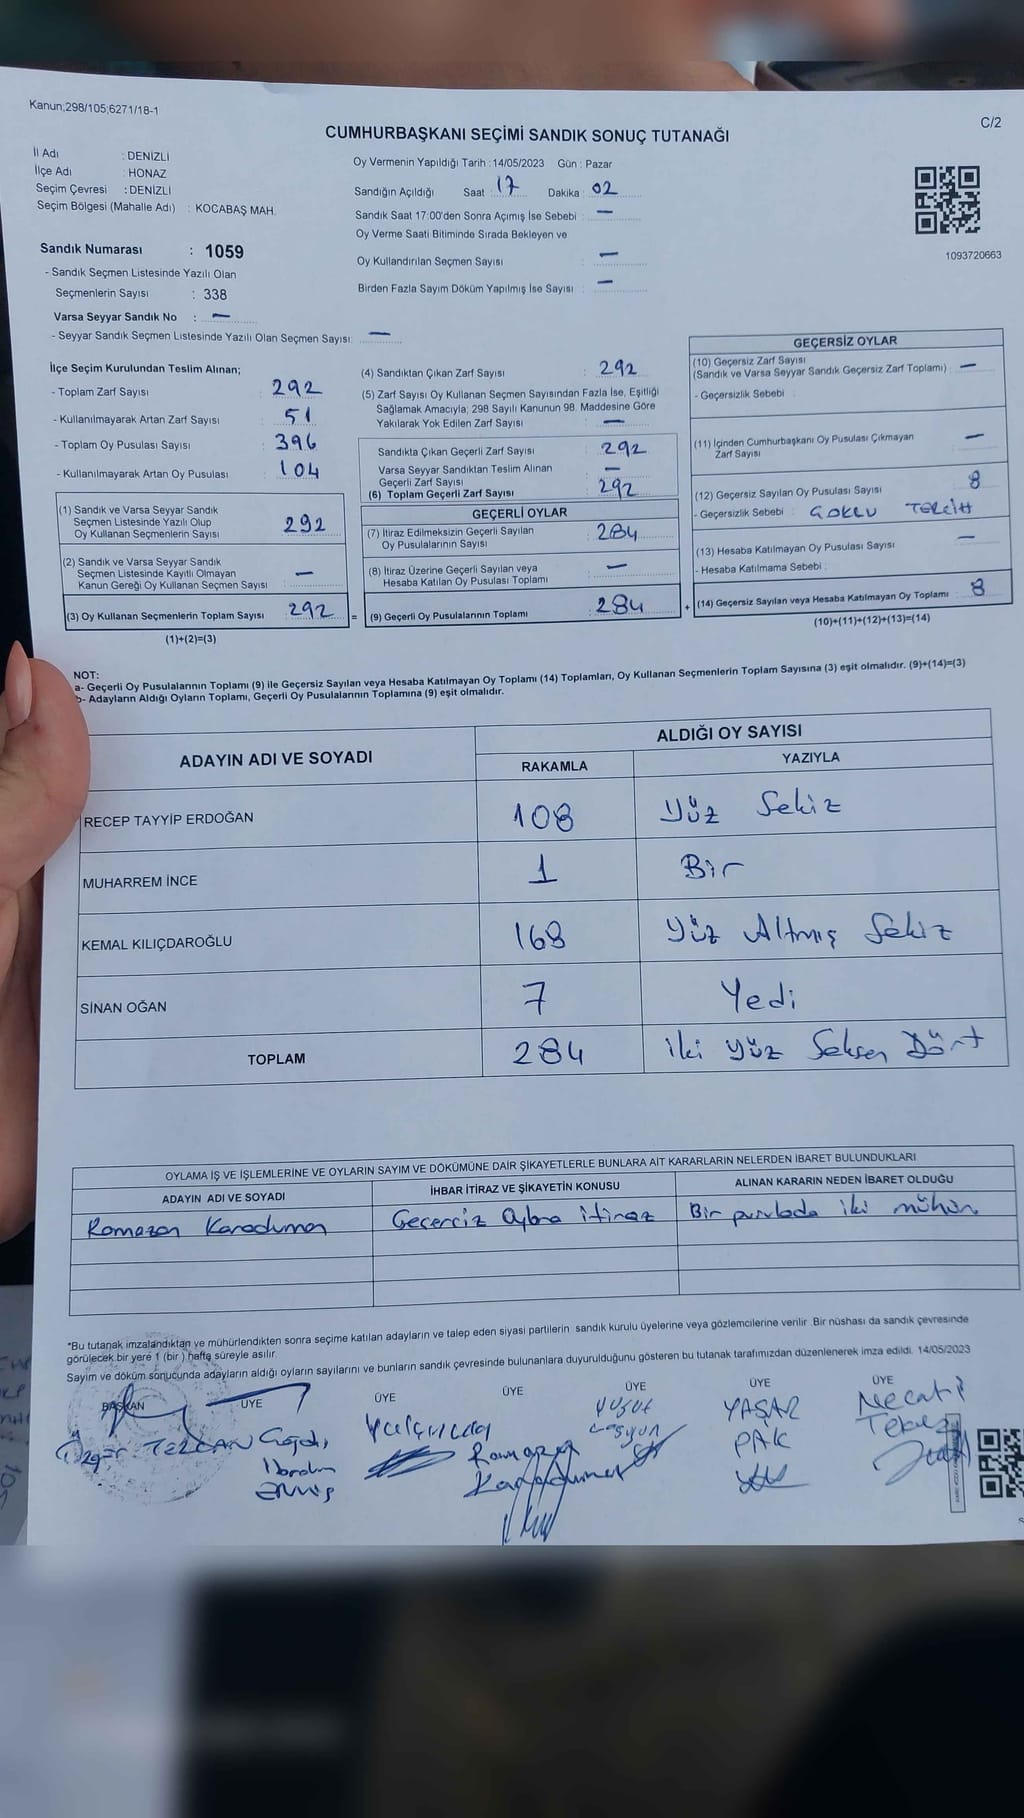 Kanun;298/105;6271/18-1
C/2
CUMHURBAŞKANI SEÇİMİ SANDIK SONUÇ TUTANAĞI
İl Adı : DENİZLİ
İlçe Adı : HONAZ
Seçim Çevresi : DENİZLİ
Seçim Bölgesi (Mahalle Adı) : KOCABAŞ MAH.
Oy Vermenin Yapıldığı Tarih : 14/05/2023 Gün : Pazar
Sandığın Açıldığı Saat : 17 Dakika : 02
Sandık Saat 17:00'den Sonra Açımış İse Sebebi : —
Oy Verme Saati Bitiminde Sırada Bekleyen ve
Oy Kullandırılan Seçmen Sayısı : —
Birden Fazla Sayım Döküm Yapılmış İse Sayısı : —
1093720663
Sandık Numarası : 1059
- Sandık Seçmen Listesinde Yazılı Olan
Seçmenlerin Sayısı : 338
Varsa Seyyar Sandık No : —
- Seyyar Sandık Seçmen Listesinde Yazılı Olan Seçmen Sayısı: —
İlçe Seçim Kurulundan Teslim Alınan;
- Toplam Zarf Sayısı : 292
- Kullanılmayarak Artan Zarf Sayısı : 51
- Toplam Oy Pusulası Sayısı : 396
- Kullanılmayarak Artan Oy Pusulası : 104
(1) Sandık ve Varsa Seyyar Sandık
Seçmen Listesinde Yazılı Olup
Oy Kullanan Seçmenlerin Sayısı : 292
(2) Sandık ve Varsa Seyyar Sandık
Seçmen Listesinde Kayıtlı Olmayan
Kanun Gereği Oy Kullanan Seçmen Sayısı : —
(3) Oy Kullanan Seçmenlerin Toplam Sayısı : 292 =
(1)+(2)=(3)
(4) Sandıktan Çıkan Zarf Sayısı : 292
(5) Zarf Sayısı Oy Kullanan Seçmen Sayısından Fazla İse, Eşitliği
Sağlamak Amacıyla; 298 Sayılı Kanunun 98. Maddesine Göre
Yakılarak Yok Edilen Zarf Sayısı : —
Sandıkta Çıkan Geçerli Zarf Sayısı : 292
Varsa Seyyar Sandıktan Teslim Alınan
Geçerli Zarf Sayısı : —
(6) Toplam Geçerli Zarf Sayısı : 292
GEÇERLİ OYLAR
(7) İtiraz Edilmeksizin Geçerli Sayılan
Oy Pusulalarının Sayısı : 284
(8) İtiraz Üzerine Geçerli Sayılan veya
Hesaba Katılan Oy Pusulası Toplamı : —
(9) Geçerli Oy Pusulalarının Toplamı : 284 +
GEÇERSİZ OYLAR
(10) Geçersiz Zarf Sayısı
(Sandık ve Varsa Seyyar Sandık Geçersiz Zarf Toplamı) : —
- Geçersizlik Sebebi :
(11) İçinden Cumhurbaşkanı Oy Pusulası Çıkmayan
Zarf Sayısı —
(12) Geçersiz Sayılan Oy Pusulası Sayısı : 8
- Geçersizlik Sebebi : ÇOKLU TERCİH
(13) Hesaba Katılmayan Oy Pusulası Sayısı : —
- Hesaba Katılmama Sebebi :
(14) Geçersiz Sayılan veya Hesaba Katılmayan Oy Toplamı : 8
(10)+(11)+(12)+(13)=(14)
NOT:
a- Geçerli Oy Pusulalarının Toplamı (9) ile Geçersiz Sayılan veya Hesaba Katılmayan Oy Toplamı (14) Toplamları, Oy Kullanan Seçmenlerin Toplam Sayısına (3) eşit olmalıdır. (9)+(14)=(3)
b- Adayların Aldığı Oyların Toplamı, Geçerli Oy Pusulalarının Toplamına (9) eşit olmalıdır.
ADAYIN ADI VE SOYADI ALDIĞI OY SAYISI
RAKAMLA YAZIYLA
RECEP TAYYİP ERDOĞAN 108 Yüz Sekiz
MUHARREM İNCE 1 Bir
KEMAL KILIÇDAROĞLU 168 Yüz Altmış Sekiz
SİNAN OĞAN 7 Yedi
TOPLAM 284 iki yüz Seksen Dört
OYLAMA İŞ VE İŞLEMLERİNE VE OYLARIN SAYIM VE DÖKÜMÜNE DAİR ŞİKAYETLERLE BUNLARA AİT KARARLARIN NELERDEN İBARET BULUNDUKLARI
ADAYIN ADI VE SOYADI İHBAR İTİRAZ VE ŞİKAYETİN KONUSU ALINAN KARARIN NEDEN İBARET OLDUĞU
Ramazan Karaduman Geçersiz Oylara itiraz Bir pusulada iki mühür
*Bu tutanak imzalandıktan ve mühürlendikten sonra seçime katılan adayların ve talep eden siyasi partilerin sandık kurulu üyelerine veya gözlemcilerine verilir. Bir nüshası da sandık çevresinde
görülecek bir yere 1 (bir ) hafta süreyle asılır.
Sayım ve döküm sonucunda adayların aldığı oyların sayılarını ve bunların sandık çevresinde bulunanlara duyurulduğunu gösteren bu tutanak tarafımızdan düzenlenerek imza edildi. 14/05/2023
BAŞKAN ÜYE ÜYE ÜYE ÜYE ÜYE ÜYE
Özgür TERCAN
Ramazan
Karaduman
Yusuf
YAŞAR
PAK
Necati